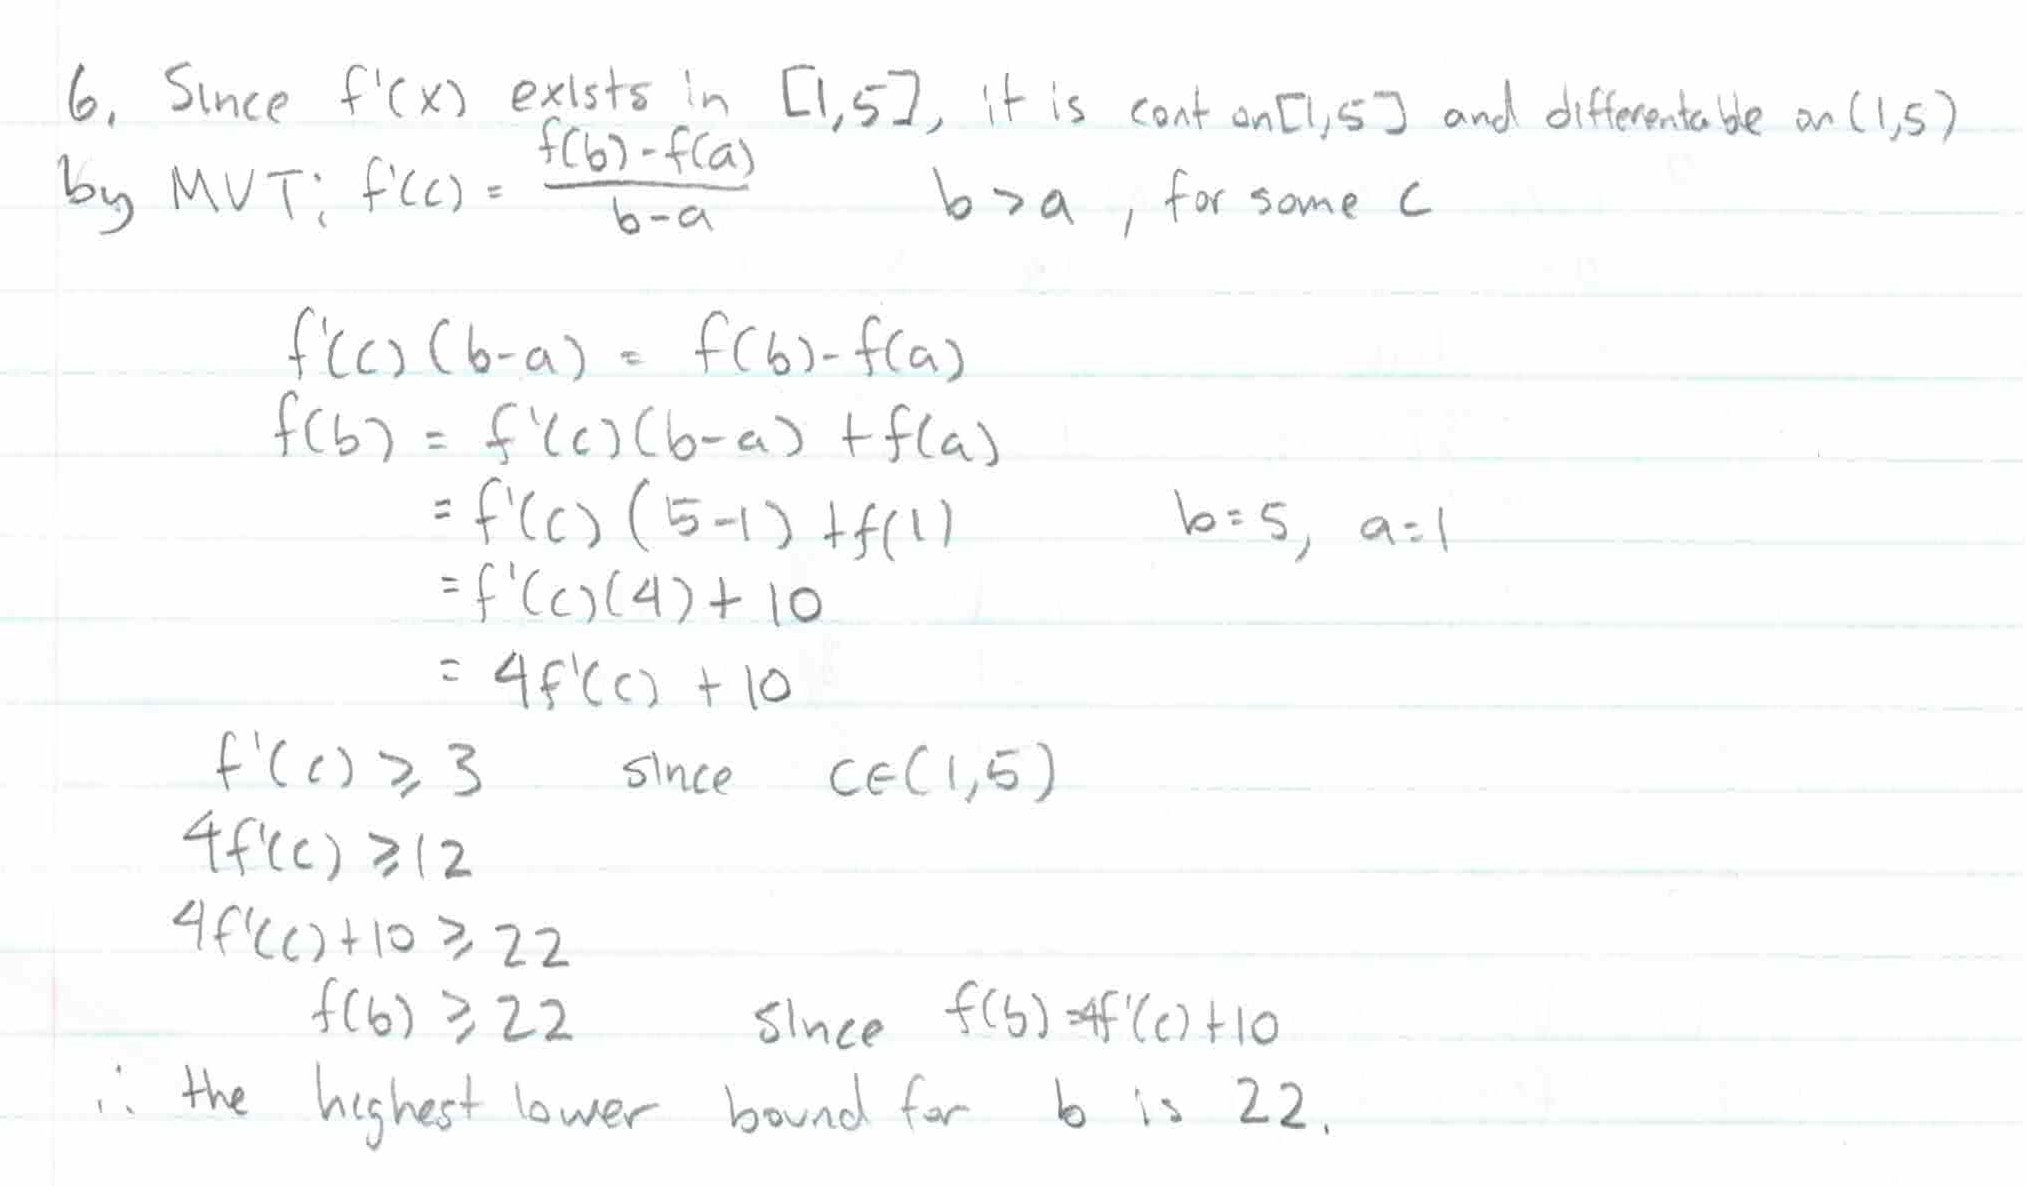 6. Since f'(x) exists in [1,5], it is cont on [1,5] and differentable on (1,5)
by MVT: f'(c) = (f(b)-f(a))/(b-a) b>a, for some c
f'(c)(b-a) = f(b)-f(a)
f(b) = f'(c)(b-a) + f(a)
= f'(c)(5-1) + f(1) b=5, a=1
= f'(c)(4) + 10
= 4f'(c) + 10
f'(c) ⩾ 3 since c∈(1,5)
4f'(c) ⩾ 12
4f'(c)+10 ⩾ 22
f(b) ⩾ 22 since f(b)=4f'(c)+10
∴ the highest lower bound for b is 22.